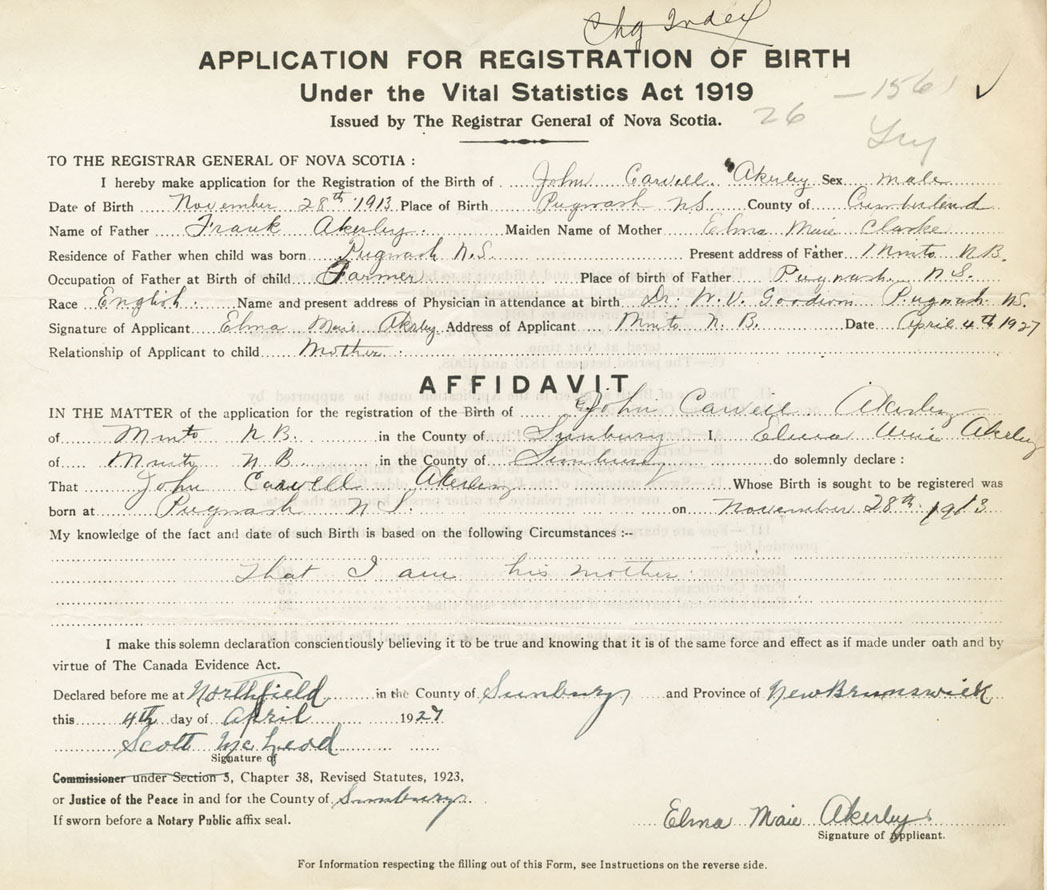 Chg Index
APPLICATION FOR REGISTRATION OF BIRTH
Under the Vital Statistics Act 1919
26 - 156
Issued by The Registrar General of Nova Scotia.
TO THE REGISTRAR GENERAL OF NOVA SCOTIA :
I hereby make application for the Registration of the Birth of John Carvell Akerley Sex male
Date of Birth November 28th 1913 Place of Birth Pugwash N.S. County of Cumberland
Name of Father Frank Akerley. Maiden Name of Mother Elma Maie Clarke
Residence of Father when child was born Pugwash N.S. Present address of Father Minto N.B.
Occupation of Father at Birth of child Farmer Place of birth of Father Pugwash, N.S.
Race English. Name and present address of Physician in attendance at birth Dr. W. V. Goodwin Pugwash N.S.
Signature of Applicant Elma Maie Akerley Address of Applicant Minto N.B. Date April 4th 1927
Relationship of Applicant to child Mother.
AFFIDAVIT
IN THE MATTER of the application for the registration of the Birth of John Carvell Akerley
of Minto N.B. in the County of Sunbury I, Elma Maie Akerley
of Minto N.B. in the County of Sunbury do solemnly declare :
That John Carvell Akerley Whose Birth is sought to be registered was
born at Pugwash N.S. on November 28th 1913
My knowledge of the fact and date of such Birth is based on the following Circumstances :--
That I am his mother.
I make this solemn declaration conscientiously believing it to be true and knowing that it is of the same force and effect as if made under oath and by
virtue of The Canada Evidence Act.
Declared before me at Northfield in the County of Sunbury and Province of New Brunswick
this 4th day of April 1927
Scott McLeod
Signature of
Commissioner under Section 3, Chapter 38, Revised Statutes, 1923,
or Justice of the Peace in and for the County of Sunbury.
If sworn before a Notary Public affix seal.
Elma Maie Akerley
Signature of Applicant.
For Information respecting the filling out of this Form, see Instructions on the reverse side.